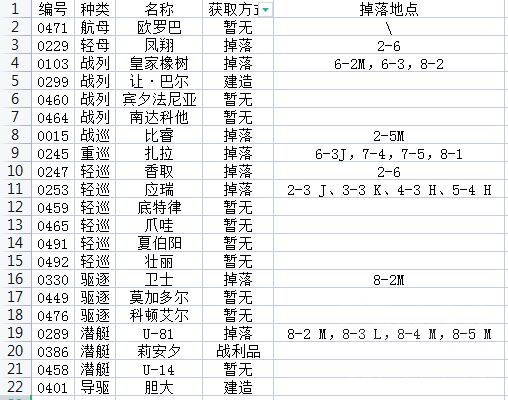 1 编号 种类 名称 获取方式 掉落地点
2 0471 航母 欧罗巴 暂无 \
3 0229 轻母 凤翔 掉落 2-6
4 0103 战列 皇家橡树 掉落 6-2M，6-3，8-2
5 0299 战列 让·巴尔 建造
6 0460 战列 宾夕法尼亚 暂无
7 0464 战列 南达科他 暂无
8 0015 战巡 比睿 掉落 2-5M
9 0245 重巡 扎拉 掉落 6-3J，7-4，7-5，8-1
10 0247 轻巡 香取 掉落 2-6
11 0253 轻巡 应瑞 掉落 2-3 J、3-3 K、4-3 H、5-4 H
12 0459 轻巡 底特律 暂无
13 0465 轻巡 爪哇 暂无
14 0491 轻巡 夏伯阳 暂无
15 0492 轻巡 壮丽 暂无
16 0330 驱逐 卫士 掉落 8-2M
17 0449 驱逐 莫加多尔 暂无
18 0476 驱逐 科顿艾尔 暂无
19 0289 潜艇 U-81 掉落 8-2 M，8-3 L，8-4 M，8-5 M
20 0386 潜艇 莉安夕 战利品
21 0458 潜艇 U-14 暂无
22 0401 导驱 胆大 建造